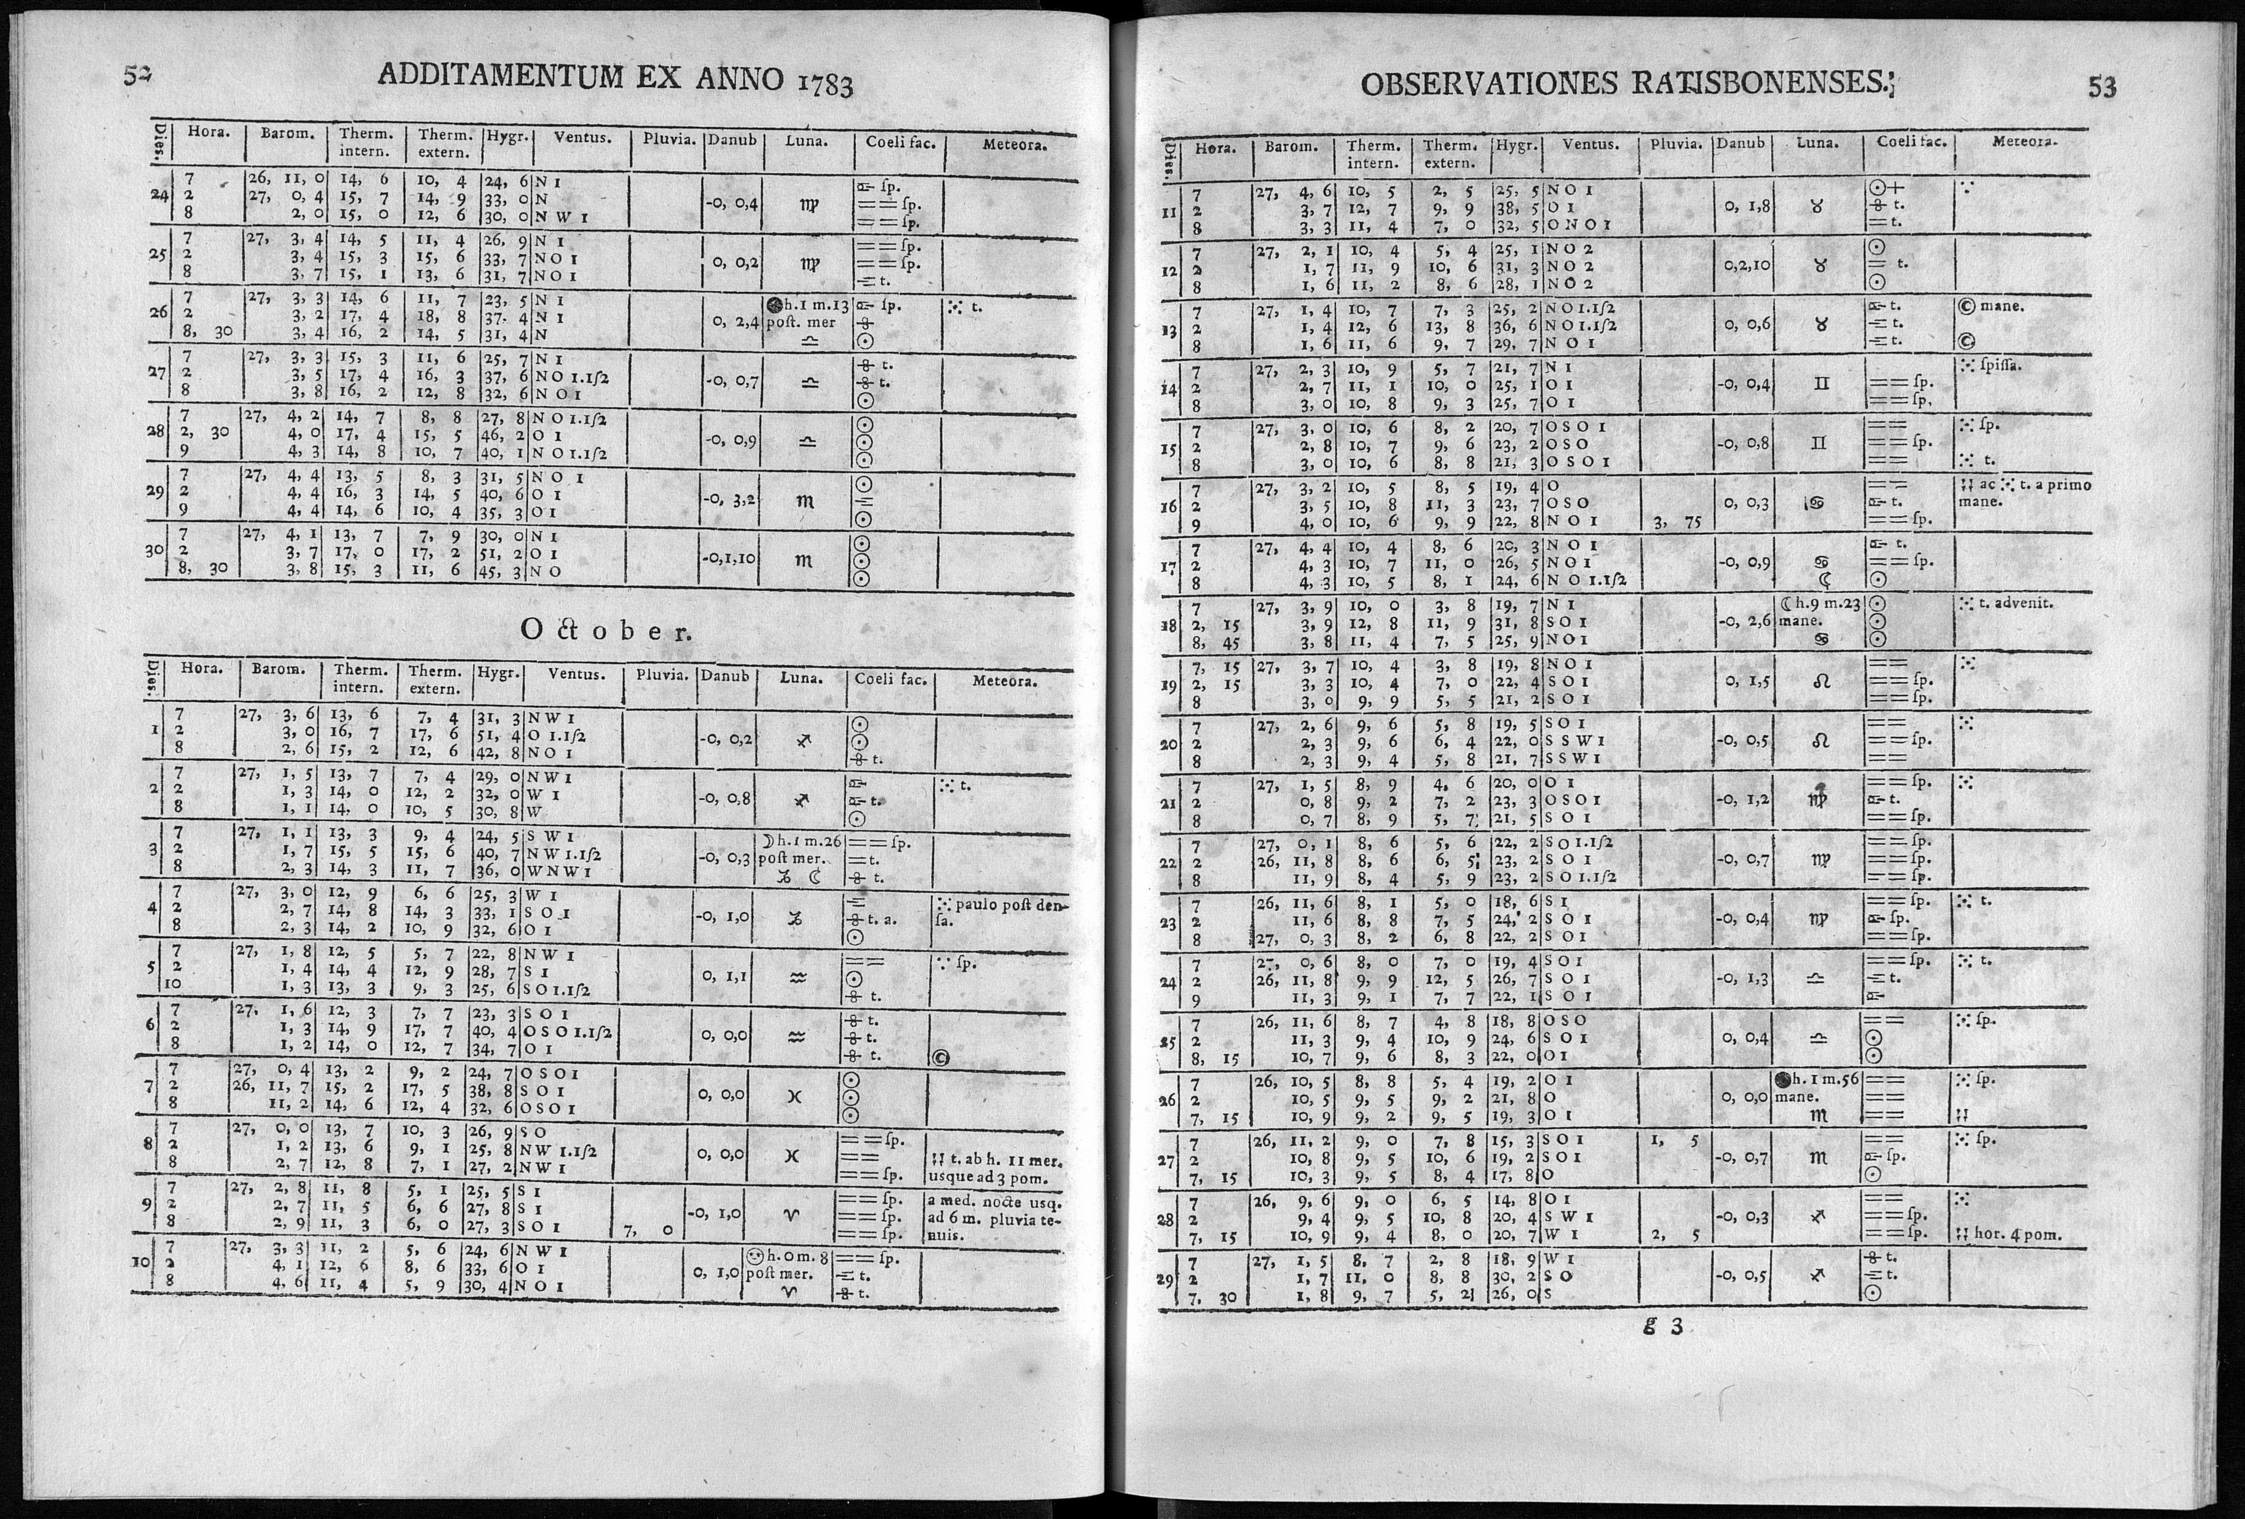 52
ADDITAMENTUM EX ANNO 1783
Dies. Hora. Barom. Therm. intern. Therm. extern. Hygr. Ventus. Pluvia. Danub Luna. Coeli fac. Meteora.
7 26, 11, 0 14, 6 10, 4 24, 6 N 1 sp.
24 2 27, 0, 4 15, 7 14, 9 33, 0 N -0, 0,4 ♍ == sp.
8 2, 0 15, 0 12, 6 30, 0 N W 1 == sp.
7 27, 3, 4 14, 5 11, 4 26, 9 N 1 == sp.
25 2 3, 4 15, 3 15, 6 33, 7 N O 1 0, 0,2 ♍ == sp.
8 3, 7 15, 1 13, 6 31, 7 N O 1 t.
7 27, 3, 3 14, 6 11, 7 23, 5 N 1 ● h. 1 m. 13 sp. ⁙ t.
26 2 3, 2 17, 4 18, 8 37. 4 N 1 0, 2,4 post. mer
8, 30 3, 4 16, 2 14, 5 31, 4 N ♎ ☉
7 27, 3, 3 15, 3 11, 6 25, 7 N 1 t.
27 2 3, 5 17, 4 16, 3 37, 6 NO 1.1ſ2 -0, 0,7 ♎ t.
8 3, 8 16, 2 12, 8 32, 6 N O 1 ☉
7 27, 4, 2 14, 7 8, 8 27, 8 N O 1.1ſ2 ☉
28 2, 30 4, 0 17, 4 15, 5 46, 2 O 1 -0, 0,9 ♎ ☉
9 4, 3 14, 8 10, 7 40, 1 N O 1.1ſ2 ☉
7 27, 4, 4 13, 5 8, 3 31, 5 N O 1 ☉
29 2 4, 4 16, 3 14, 5 40, 6 O 1 -0, 3,2 ♏
9 4, 4 14, 6 10, 4 35, 3 O 1 ☉
7 27, 4, 1 13, 7 7, 9 30, 0 N 1 ☉
30 2 3, 7 17, 0 17, 2 51, 2 O 1 -0,1,10 ♏ ☉
8, 30 3, 8 15, 3 11, 6 45, 3 N O ☉
October.
Dies. Hora. Barom. Therm. intern. Therm. extern. Hygr. Ventus. Pluvia. Danub Luna. Coeli fac. Meteora.
7 27, 3, 6 13, 6 7, 4 31, 3 N W 1 ☉
1 2 3, 0 16, 7 17, 6 51, 4 O 1.1ſ2 -0, 0,2 ♐ ☉
8 2, 6 15, 2 12, 6 42, 8 N O 1 t.
7 27, 1, 5 13, 7 7, 4 29, 0 N W 1 ⁙ t.
2 2 1, 3 14, 0 12, 2 32, 0 W 1 -0, 0,8 ♐ t.
8 1, 1 14, 0 10, 5 30, 8 W ☉
7 27, 1, 1 13, 3 9, 4 24, 5 S W 1 ☽ h. 1 m. 26 == sp.
3 2 1, 7 15, 5 15, 6 40, 7 N W 1.1ſ2 -0, 0,3 post mer. = t.
8 2, 3 14, 3 11, 7 36, 0 W N W 1 ♑ ☾ t.
7 27, 3, 0 12, 9 6, 6 25, 3 W 1 ⁙ paulo post den-
4 2 2, 7 14, 8 14, 3 33, 1 S O 1 -0, 1,0 ♑ t. a. sa.
8 2, 3 14, 2 10, 9 32, 6 O 1 ☉
7 27, 1, 8 12, 5 5, 7 22, 8 N W 1 == ∵ sp.
5 2 1, 4 14, 4 12, 9 28, 7 S 1 0, 1,1 ♒ ☉
10 1, 3 13, 3 9, 3 25, 6 S O 1.1ſ2 t.
7 27. 1, 6 12, 3 7, 7 23, 3 S O 1 t.
6 2 1, 3 14, 9 17, 7 40, 4 O S O 1.1ſ2 0, 0,0 ♒ t.
8 1, 2 14, 0 12, 7 34, 7 O 1 t. ©
7 27, 0, 4 13, 2 9, 2 24, 7 O S O 1 ☉
7 2 26, 11, 7 15, 2 17, 5 38, 8 S O 1 0, 0,0 ♓ ☉
8 11, 2 14, 6 12, 4 32, 6 O S O 1 ☉
7 27, 0, 0 13, 7 10, 3 26, 9 S O == sp.
8 2 1, 2 13, 6 9, 1 25, 8 N W 1.1ſ2 0, 0,0 ♓ == t. ab h. 11 mer.
8 2, 7 12, 8 7, 1 27, 2 N W 1 == sp. usque ad 3 pom.
7 27, 2, 8 11, 8 5, 1 25, 5 S 1 == sp. a med. nocte usq.
9 2 2, 7 11, 5 6, 6 27, 8 S 1 -0, 1,0 ♈ == sp. ad 6 m. pluvia te-
8 2, 9 11, 3 6, 0 27, 3 S O 1 7, 0 == sp. nuis.
7 27, 3, 3 11, 2 5, 6 24, 6 N W 1 h. 0 m. 8 == sp.
10 2 4, 1 12, 6 8, 6 33, 6 O 1 0, 1,0 post mer. t.
8 4, 6 11, 4 5, 9 30, 4 N O 1 ♈ t.
OBSERVATIONES RATISBONENSES.
53
Dies. Hora. Barom. Therm. intern. Therm. extern. Hygr. Ventus. Pluvia. Danub Luna. Coeli fac. Meteora.
7 27, 4, 6 10, 5 2, 5 25, 5 N O 1 ☉+ ∵
11 2 3, 7 12, 7 9, 9 38, 5 O 1 0, 1,8 ♉ t.
8 3, 3 11, 4 7, 0 32, 5 O N O 1 = t.
7 27, 2, 1 10, 4 5, 4 25, 1 N O 2 ☉
12 2 1, 7 11, 9 10, 6 31, 3 N O 2 0,2,10 ♉ = t.
8 1, 6 11, 2 8, 6 28, 1 N O 2 ☉
7 27, 1, 4 10, 7 7, 3 25, 2 N O 1.1ſ2 t. © mane.
13 2 1, 4 12, 6 13, 8 36, 6 N O 1.1ſ2 0, 0,6 ♉ t.
8 1, 6 11, 6 9, 7 29, 7 N O 1 t. ©
7 27, 2, 3 10, 9 5, 7 21, 7 N 1 ⁙ spissa.
14 2 2, 7 11, 1 10, 0 25, 1 O 1 -0, 0,4 ♊ == sp.
8 3, 0 10, 8 9, 3 25, 7 O 1 == sp.
7 27, 3, 0 10, 6 8, 2 20, 7 O S O 1 == ⁙ sp.
15 2 2, 8 10, 7 9, 6 23, 2 O S O -0, 0,8 ♊ == sp.
8 3, 0 10, 6 8, 8 21, 3 O S O 1 == ⁙ t.
7 27, 3, 2 10, 5 8, 5 19, 4 O == ac ⁙ t. a primo
16 2 3, 5 10, 8 11, 3 23, 7 O S O 0, 0,3 ♋ t. mane.
9 4, 0 10, 6 9, 9 22, 8 N O 1 3, 75 == sp.
7 27, 4, 4 10, 4 8, 6 20, 3 N O 1 t.
17 2 4, 3 10, 7 11, 0 26, 5 N O 1 -0, 0,9 ♋ == sp.
8 4, 3 10, 5 8, 1 24, 6 N O 1.1ſ2 ☾ ☉
7 27, 3, 9 10, 0 3, 8 19, 7 N 1 ☾ h. 9 m. 23 ☉ ⁙ t. advenit.
18 2, 15 3, 9 12, 8 11, 9 31, 8 S O 1 -0, 2,6 mane. ☉
8, 45 3, 8 11, 4 7, 5 25, 9 N O 1 ♋ ☉
7, 15 27, 3, 7 10, 4 3, 8 19, 8 N O 1 == ⁙
19 2, 15 3, 3 10, 4 7, 0 22, 4 S O 1 0, 1,5 ♌ == sp.
8 3, 0 9, 9 5, 5 21, 2 S O 1 == sp.
7 27, 2, 6 9, 6 5, 8 19, 5 S O 1 == ⁙
20 2 2, 3 9, 6 6, 4 22, 0 S S W 1 -0, 0,5 ♌ == sp.
8 2, 3 9, 4 5, 8 21, 7 S S W 1 ==
7 27, 1, 5 8, 9 4, 6 20, 0 O 1 == sp. ⁙
21 2 0, 8 9, 2 7, 2 23, 3 O S O 1 -0, 1,2 ♍ t.
8 0, 7 8, 9 5, 7 21, 5 S O 1 == sp.
7 27, 0, 1 8, 6 5, 6 22, 2 S O 1.1ſ2 == sp.
22 2 26, 11, 8 8, 6 6, 5 23, 2 S O 1 -0, 0,7 ♍ == sp.
8 11, 9 8, 4 5, 9 23, 2 S O 1.1ſ2 == sp.
7 26, 11, 6 8, 1 5, 0 18, 6 S 1 == sp. ⁙ t.
23 2 11, 6 8, 8 7, 5 24, 2 S O 1 -0, 0,4 ♍ sp.
8 27, 0, 3 8, 2 6, 8 22, 2 S O 1 == sp.
7 27, 0, 6 8, 0 7, 0 19, 4 S O 1 == sp. ⁙ t.
24 2 26, 11, 8 9, 9 12, 5 26, 7 S O 1 -0, 1,3 ♎ t.
9 11, 3 9, 1 7, 7 22, 1 S O 1
7 26, 11, 6 8, 7 4, 8 18, 8 O S O == ⁙ sp.
25 2 11, 3 9, 4 10, 9 24, 6 S O 1 0, 0,4 ♎ ☉
8, 15 10, 7 9, 6 8, 3 22, 0 O 1 ☉
7 26, 10, 5 8, 8 5, 4 19, 2 O 1 ● h. 1 m. 56 == ⁙ sp.
26 2 10, 5 9, 5 9, 2 21, 8 O 0, 0,0 mane. ==
7, 15 10, 9 9, 2 9, 5 19, 3 O 1 ♏ ==
7 26, 11, 2 9, 0 7, 8 15, 3 S O 1 1, 5 == ⁙ sp.
27 2 10, 8 9, 5 10, 6 19, 2 S O 1 -0, 0,7 ♏ sp.
7, 15 10, 3 9, 5 8, 4 17, 8 O ☉
7 26, 9, 6 9, 0 6, 5 14, 8 O 1 == ⁙
28 2 9, 4 9, 5 10, 8 20, 4 S W 1 -0, 0,3 ♐ == sp.
7, 15 10, 9 9, 4 8, 0 20, 7 W 1 2, 5 == sp. hor. 4 pom.
7 27, 1, 5 8, 7 2, 8 18, 9 W 1 t.
29 2 1, 7 11, 0 8, 8 30, 2 S O -0, 0,5 ♐ t.
7, 30 1, 8 9, 7 5, 2 26, 0 S ☉
g 3